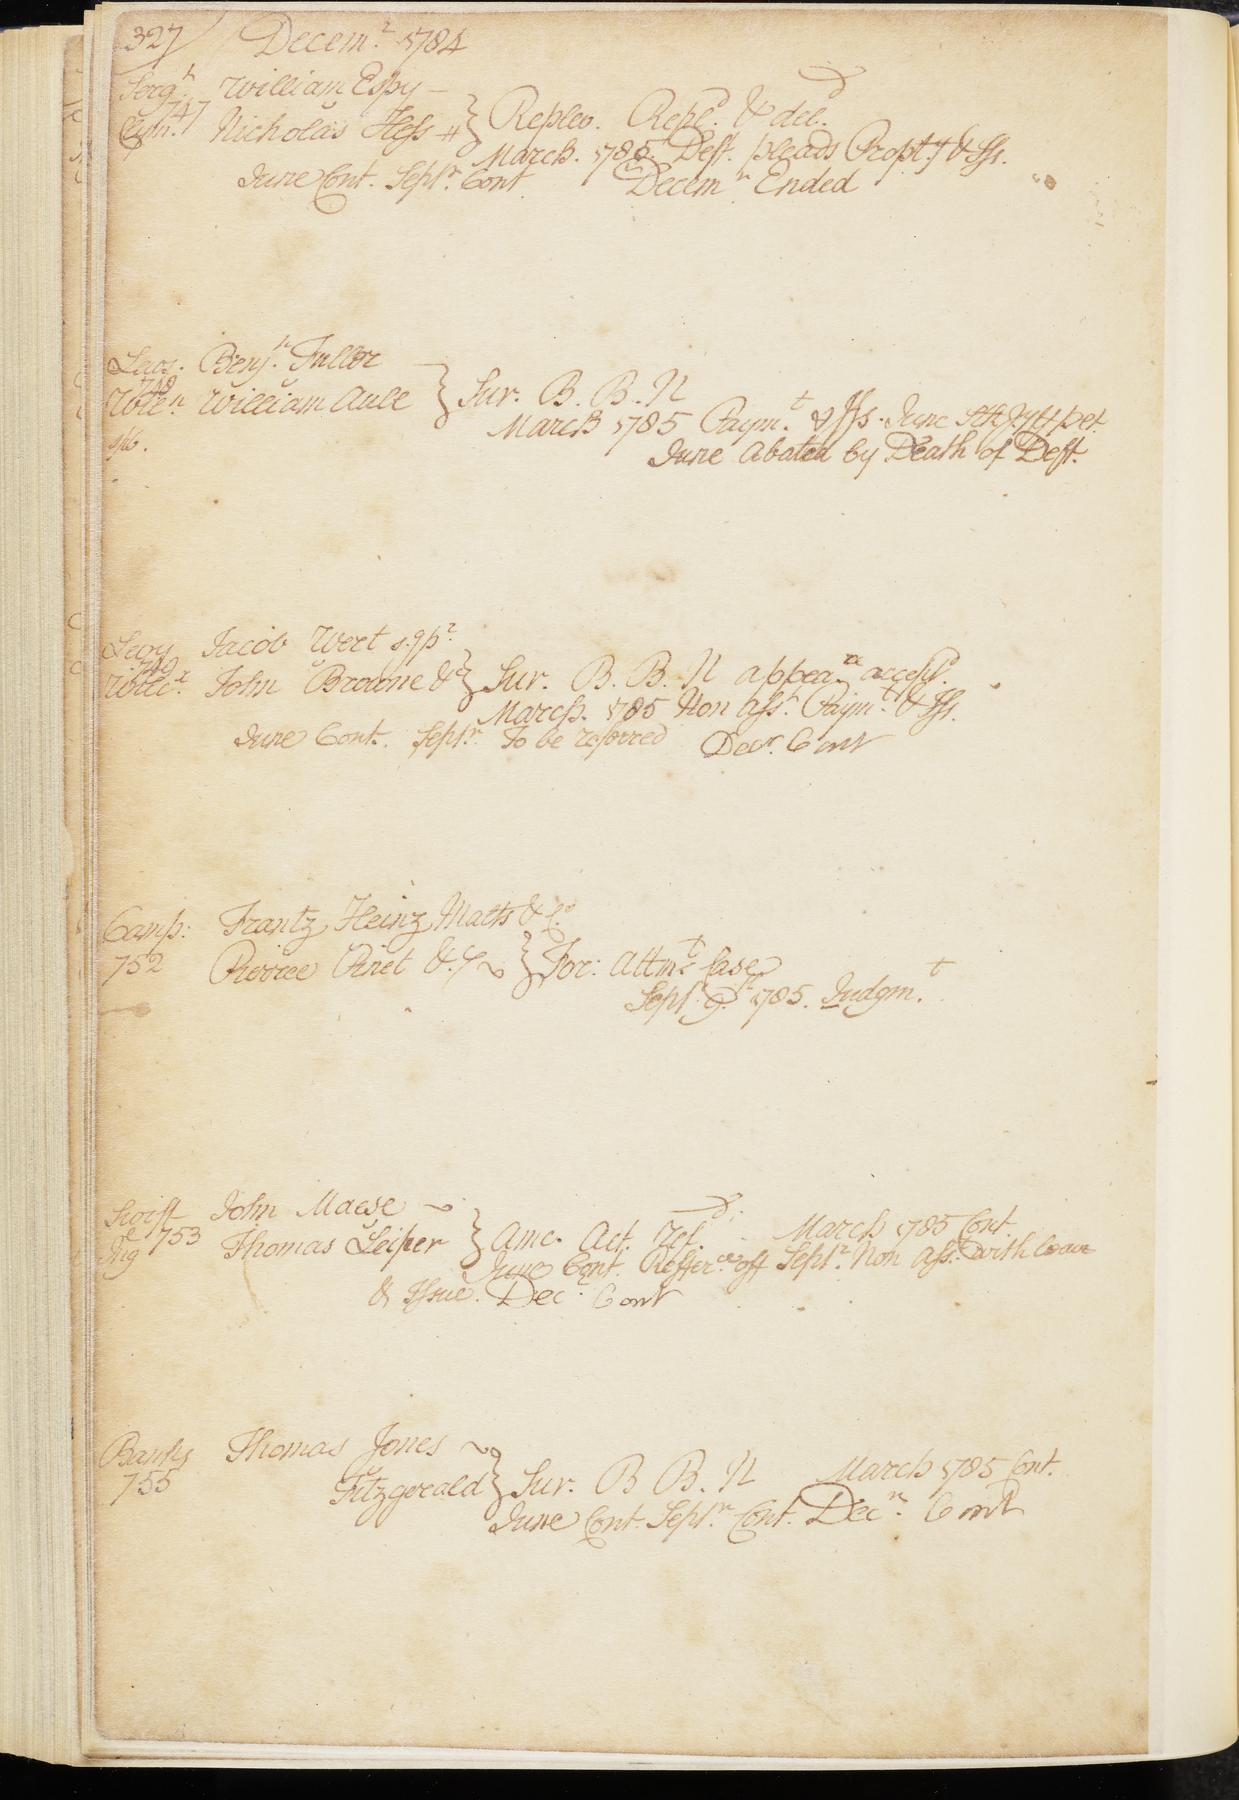 327 Decemr. 1784
Sergt. William Espy
747 Nicholas Hess } Replev. Repld. & deld.
March. 1785. Deft. pleads Propty & Iss.
June Cont. Septr. Cont. Decemr. Ended
Benjn. Fuller
748
William Aull } Sur. B. B. N
March 1785 Paymt. & Iss. June
June Abated by Death of Deft.
Levy Jacob Wert s. qpr.
749
John Browne & } Sur. B. B. N appeace. accepd.
March. 1785 Non Asst. Paymt. & Iss.
June Cont. Septr. To be referred Decr. Cont
Camp: Frantz Heinz Matts & Co.
752 Pierree Pinet & } For: Attmt. Case
Septr. 1785. Judgmt.
Swift John Maese
753 Thomas Leiper } Ame. Act. Ref. March 1785 Cont.
Ing June Cont. Refferce. off Septr. Non Ass. with leave
& Issue. Decr. Cont
Banks Thomas Jones
755 Fitzgerald } Sur. B B. N March 1785 Cont.
June Cont. Septr. Cont. Decr. Cont